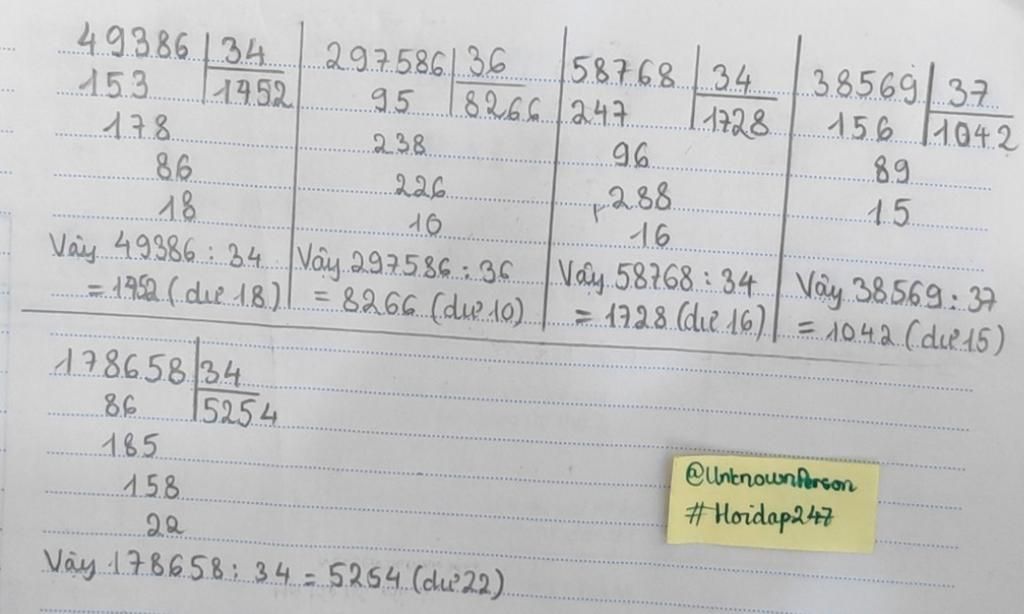 49386 34
153 1452
178
86
18
Vậy 49386 : 34
= 1452 (dư 18)
297586 36
95 8266
238
226
10
Vậy 297586 : 36
= 8266 (dư 10)
58768 34
247 1728
96
288
16
Vậy 58768 : 34
= 1728 (dư 16)
38569 37
156 1042
89
15
Vậy 38569 : 37
= 1042 (dư 15)
178658 34
86 5254
185
158
22
Vậy 178658 : 34 = 5254 (dư 22)
@UnknownPerson
#Hoidap247